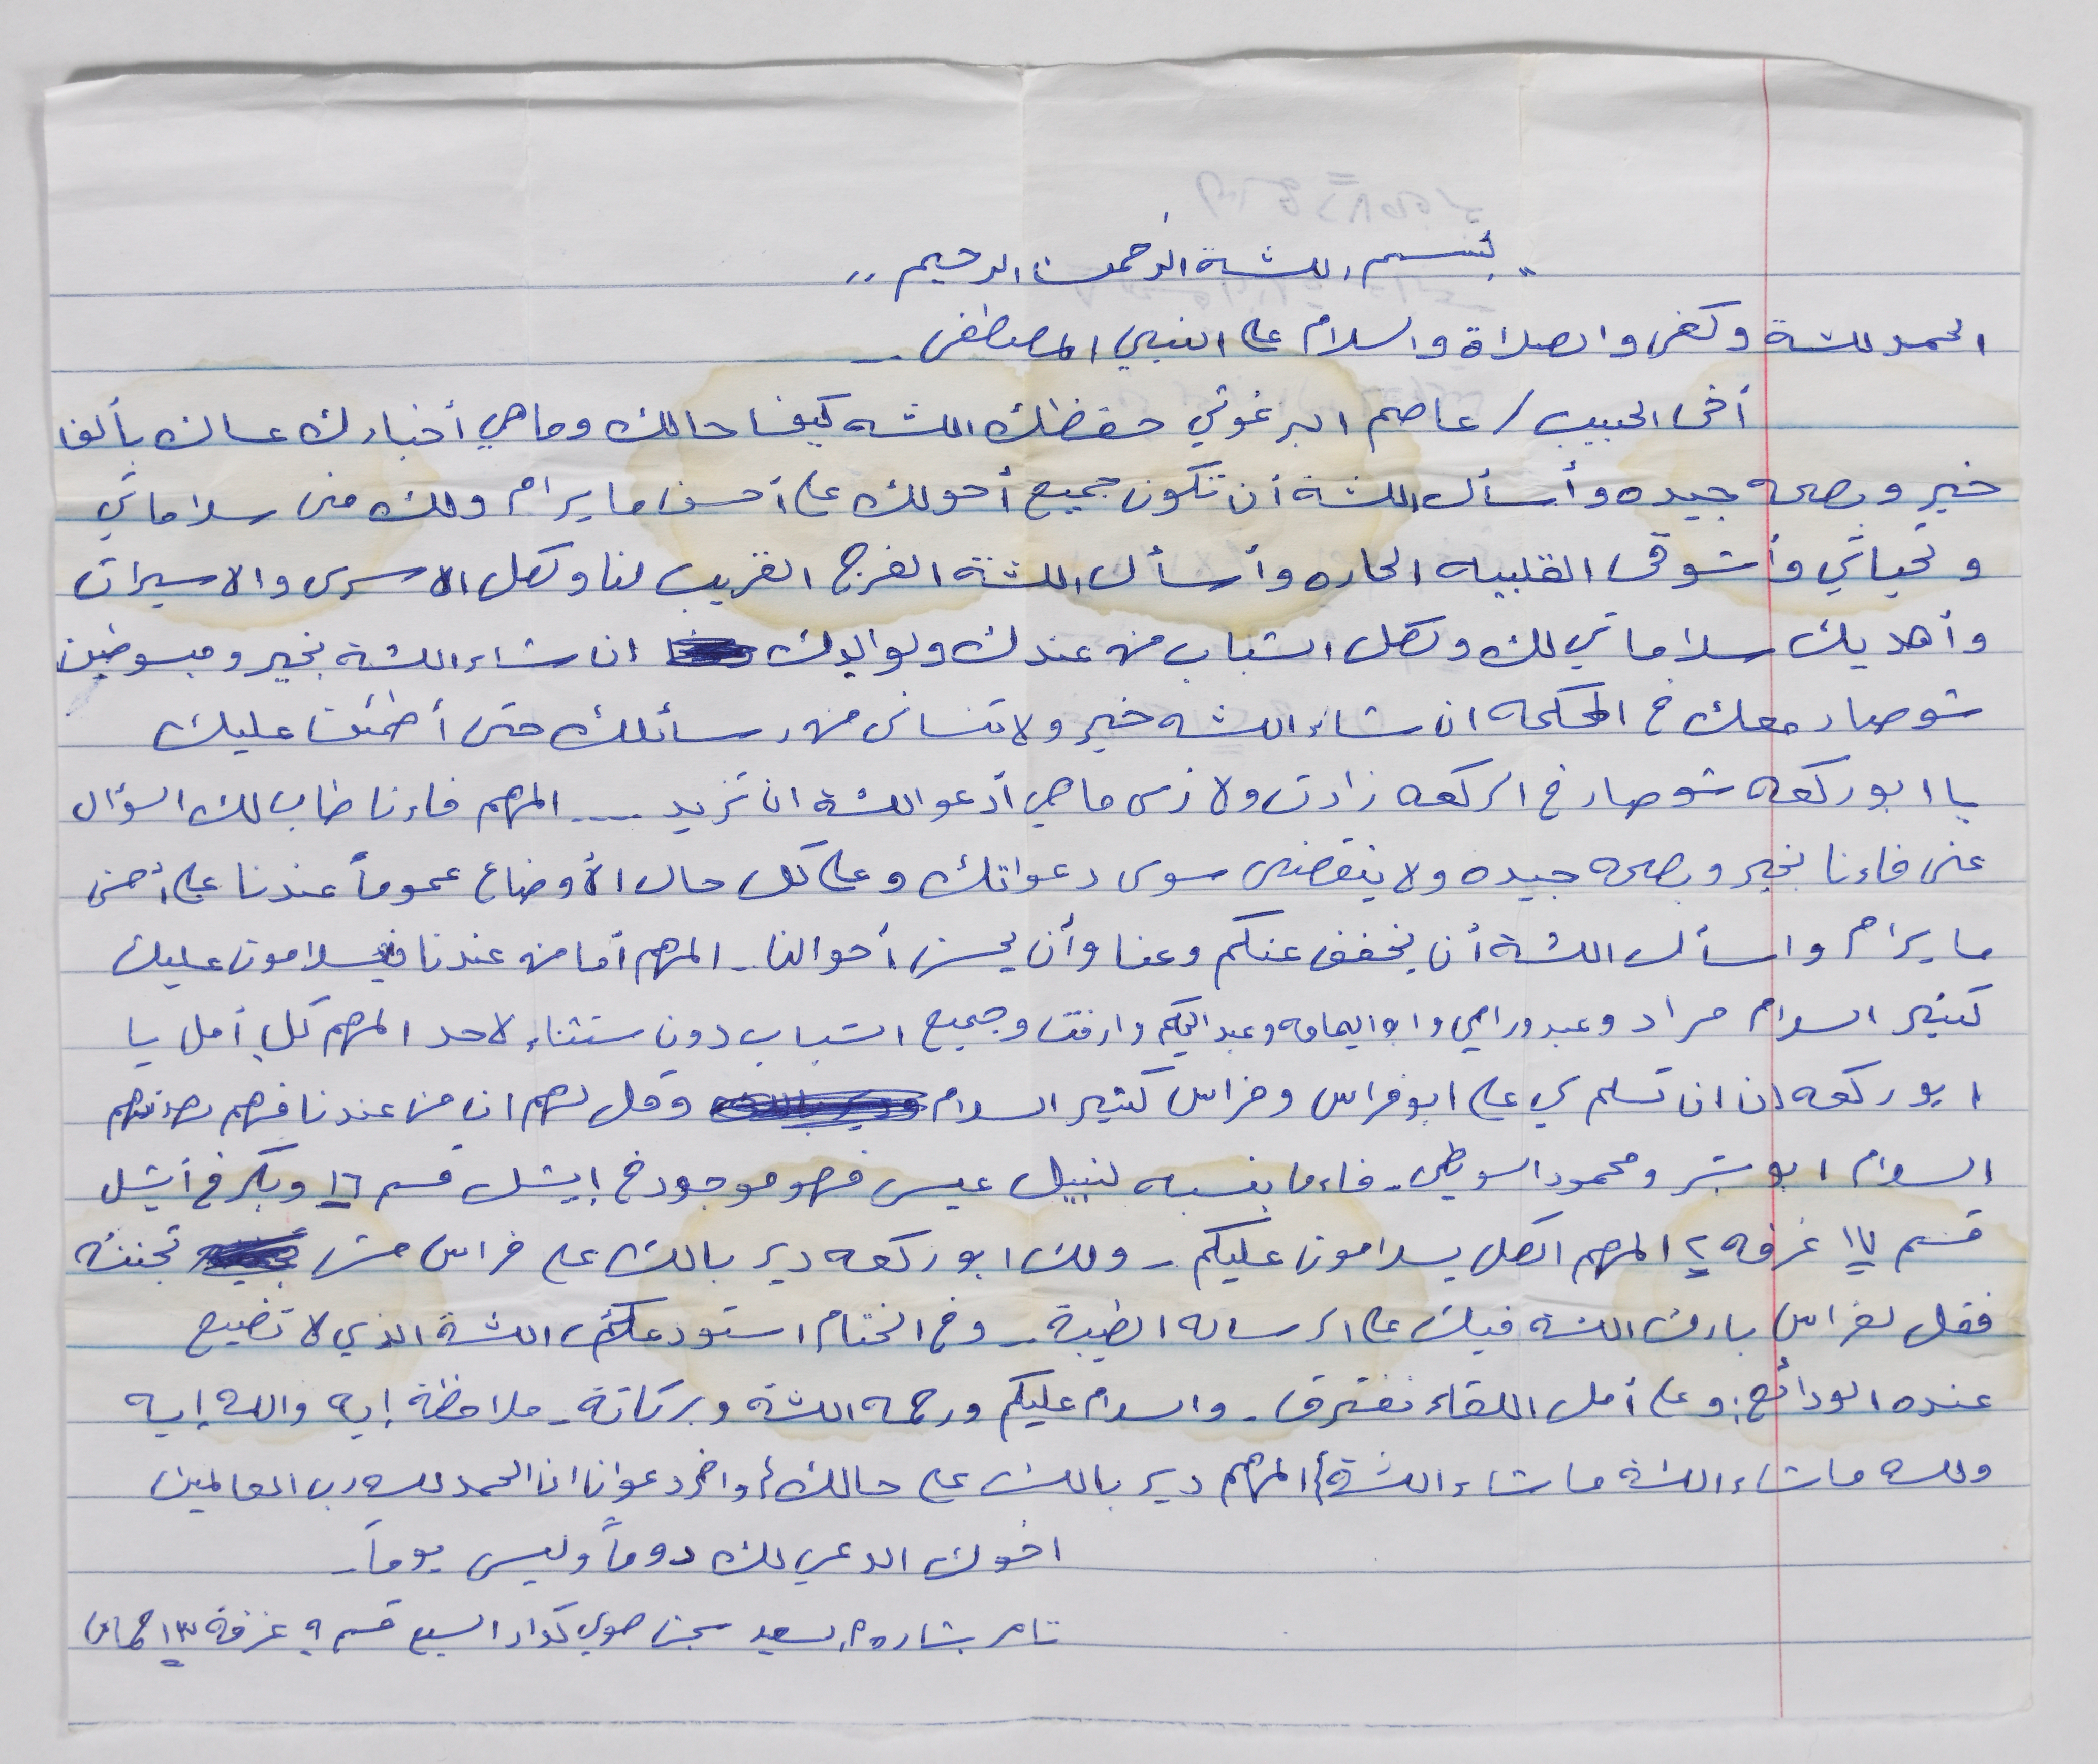 " بسم الله الرحمن الرحيم "
الحمد لله وكفى والصلاة والسلام على النبي المصطفى ..
أخي الحبيب / عاصم البرغوثي حفظك الله كيف حالك وما هي أخبارك عساك بألف
خير وبصحه جيده وأسأل الله أن تكون جميع أحولك على أحسن ما يرام ولك منى سلاماتي
وتحياتي وأشوقى القلبيه الحاره وأسأل الله الفرج القريب لنا ولكل الاسرى والاسيرات
وأهديك سلاماتي لك ولكل الشباب من عندك ولوالدك ان شاء الله بخير ومبسوطين
شو صار معك في المحكمه ان شاء الله خير ولا تنسانى من رسائلك حتى أطمئن عليك
يا ابو ركعه شو صار في الركعه زادت ولا زى ما هي أدعو الله ان تزيد .... المهم فاءنا طاب لك السؤال
عنى فاءنا بخير وبصحه جيده ولا ينقصنى سوى دعواتك وعلى كل حال الأوضاع عموماً عندنا على أحسن
ما يرام واسأل الله أن يخفف عنكم وعنا وأن يحسن أحوالنا - المهم أما من عندنا فيسلامون عليك
كثير السلام مراد وعبد ورامي وابو اليمامه وعبد الحكم وارفت وجميع الشباب دون ستثناء لاحد المهم كل أمل يا
ابو ركعه ان ان تسلم لي على ابو فراس وفراس كثير السلام وقل لهم ان من عندنا فهم يهدنهم
السلام ابو بشر ومحمود السويطي - فاءما بنسبه لنبيل عيسى فهو موجود في إيشل قسم ١٦ وبكر في أيشل
قسم ١٧ غرفه ٢ المهم الكل يسلامون عليكم - ولك ابو ركعه دير بالك على فراس مش تجننه
فقل لفراس بارك الله فيك على الرساله الطيبة - وفي الختام استودعكم الله الذي لا تضيع
عنده الودائع، وعلى أمل اللقاء نفترق - والسلام عليكم ورحمه الله وبركاتة - ملاحظة إيه والله إيه
ولله ما شاء الله ما شاء الله المهم دير بالك على حالك، واخر دعوانا ان الحمد لله رب العالمين
اخوك الدعي لك دوماً وليس يوماً -
تامر بشار سعيد سجن هولي كدار السبع قسم ٩ غرفة ١٣ حماس